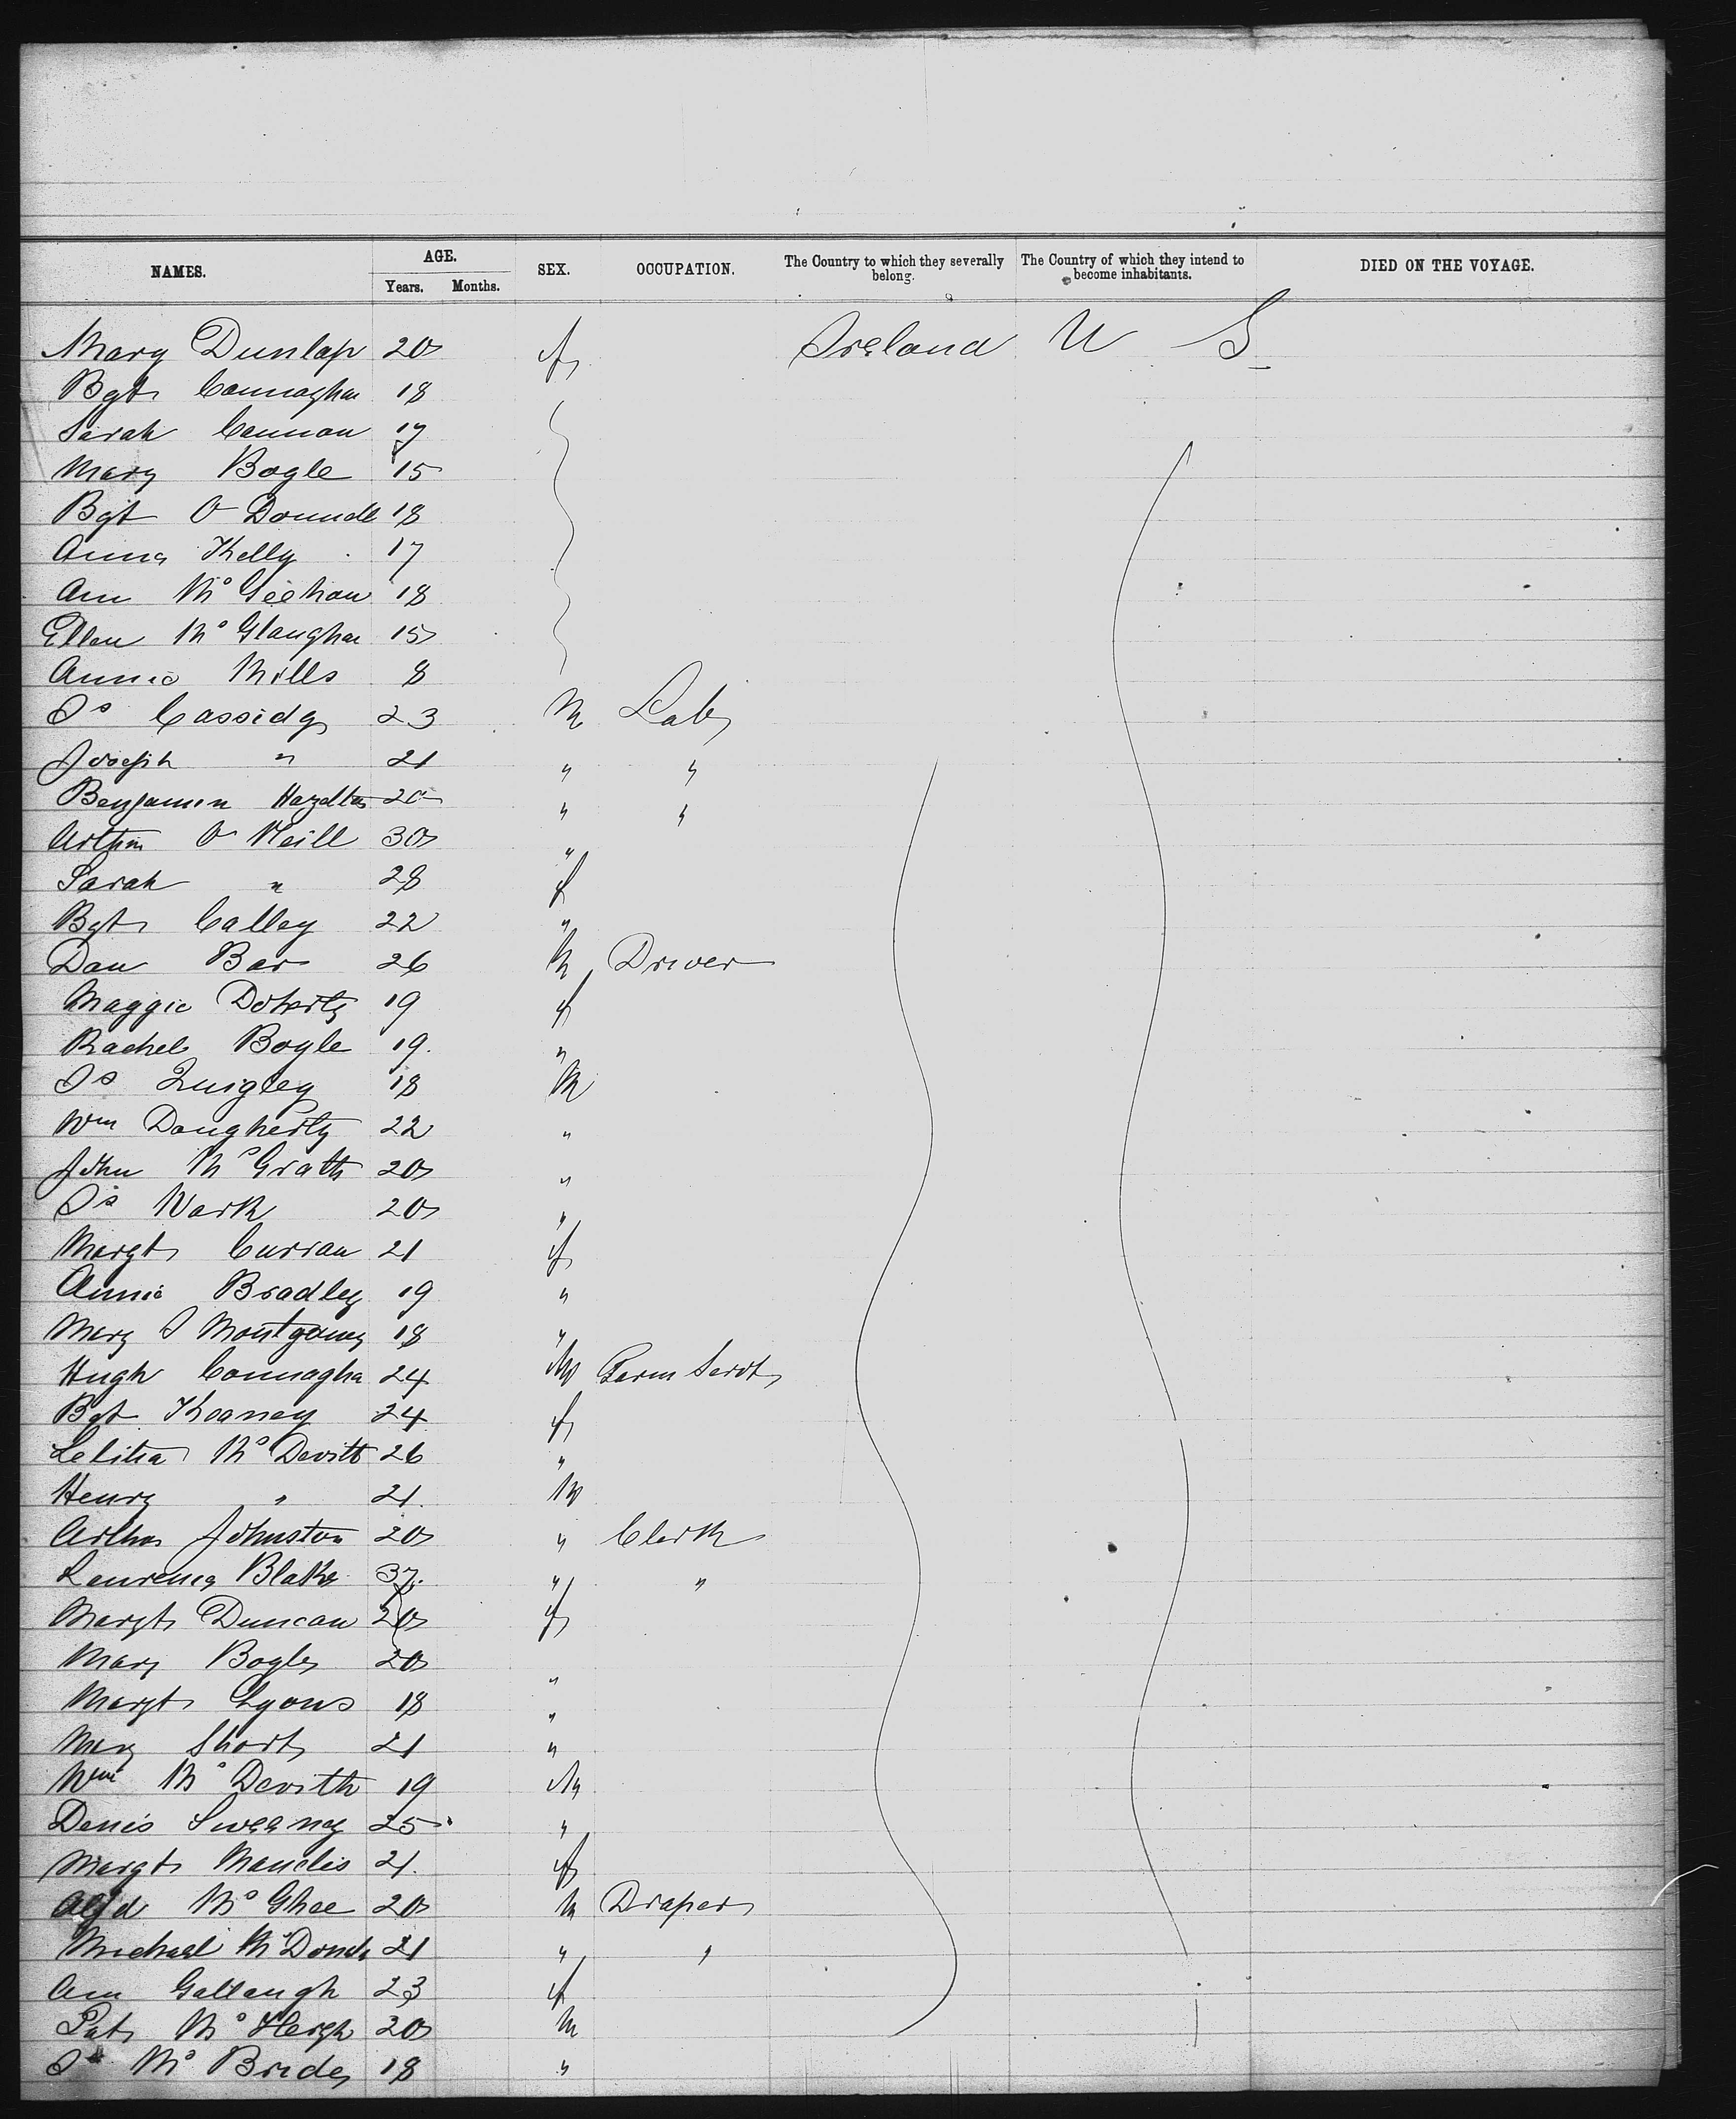 NAMES. AGE. SEX. OCCUPATION. The Country to which they severally belong. The Country of which they intend to become inhabitants. DIED ON THE VOYAGE.
Years. Months.
Mary Dunlap 20 f Ireland U S
Bgt Connaghan 18
Sarah Cannon 17
Mary Bogle 15
Bgt O Donnell 18
Anna Kelly 17
Ann Mc Geehan 18
Ellen Mc Glaughn 15
Annie Mills 8
Js Cassidy 23 M Lab
Joseph " 21 " "
Benjamin Hazelton 20 " "
Arthur O Neill 30 "
Sarah " 28 f
Bgt Calley 22 "
Dan Bar 26 M Driver
Maggie Doherty 19 f
Rachel Boyle 19. "
Js Quigley 18 M
Wm Dougherty 22 "
John Mc Grath 20 "
Js Wark 20 "
Margt Curran 21 f
Annie Bradley 19 "
Mary J Montgomey 18 "
Hugh Connagha 24 M Farm Servt
Bgt Keaney 24 f
Letitia Mc Devitt 26 "
Henry " 21. M
Arthur Johnston 20 " Clerk
Laurence Blake 37. " "
Margt Duncan 20 f
Mary Bogle 20 "
Margt Lyons 18 "
Mary Short 21 "
Wm Mc Devith 19 M
Denis Sweeney 25 "
Margt 21. f
Alfd Mc Ghee 20 M Draper
Michael Mc 21 " "
Ann Gallaugh 23 f
Pat Mc 20 M
Js Mc Bride 18 "